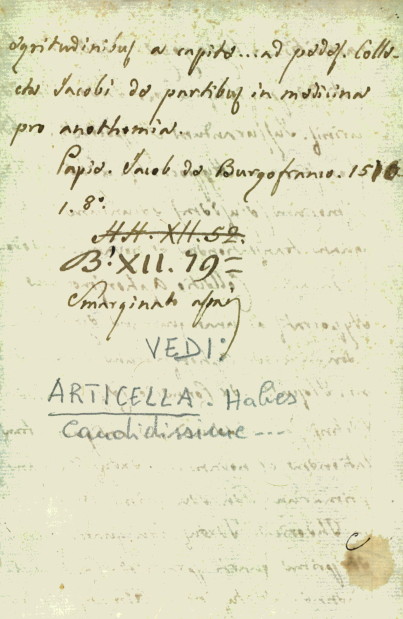 egritudinibus a capite... ad pedes. Colle-
cta Jacobi de partibus in medicina
pro anothomia.
Papie. Jacob de Burgofranco. 1510.
1. 8°.
HH. XII. 52.
B! XII. 79=
Smarginato assai
VEDI:
ARTICELLA. Habes
Candidissime ---